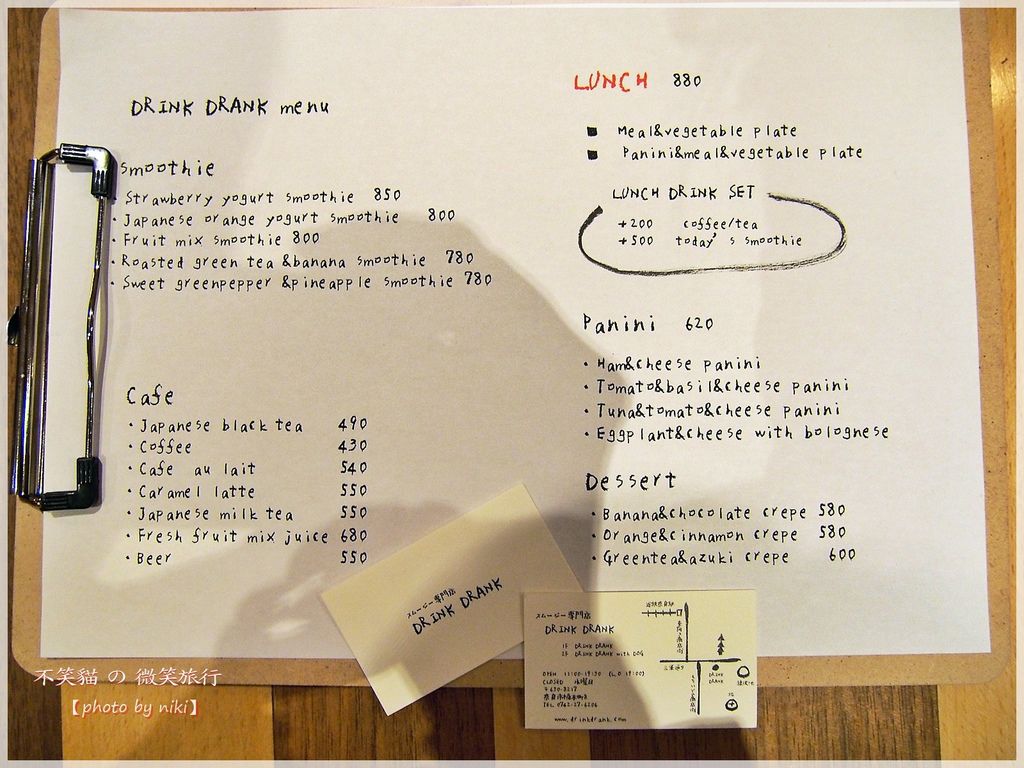 DRINK DRANK menu
smoothie
・Strawberry yogurt smoothie 850
・Japanese orange yogurt smoothie 800
・Fruit mix smoothie 800
・Roasted green tea &banana smoothie 780
・Sweet greenpepper &pineapple smoothie 780
Cafe
・Japanese black tea 490
・Coffee 430
・Cafe au lait 540
・Caramel latte 550
・Japanese milk tea 550
・Fresh fruit mix juice 680
・Beer 550
LUNCH 880
■ Meal&vegetable plate
■ Panini&meal&vegetable plate
LUNCH DRINK SET
+200 coffee/tea
+500 today's smoothie
Panini 620
・Ham&cheese panini
・Tomato&basil&cheese panini
・Tuna&tomato&cheese panini
・Eggplant&cheese with bolognese
Dessert
・Banana&chocolate crepe 580
・Orange&cinnamon crepe 580
・Greentea&azuki crepe 600
スムージー専門店
DRINK DRANK
スムージー専門店
DRINK DRANK
1F DRINK DRANK
2F DRINK DRANK with DOG
OPEN 11:00-19:30 (L.O 19:00)
CLOSED 水曜日
〒630-8217
TEL 0742-27-6206
www.drinkdrank.com
近鉄奈良駅
三条通り
DRINK
DRANK
不笑貓 の 微笑旅行
【photo by niki】